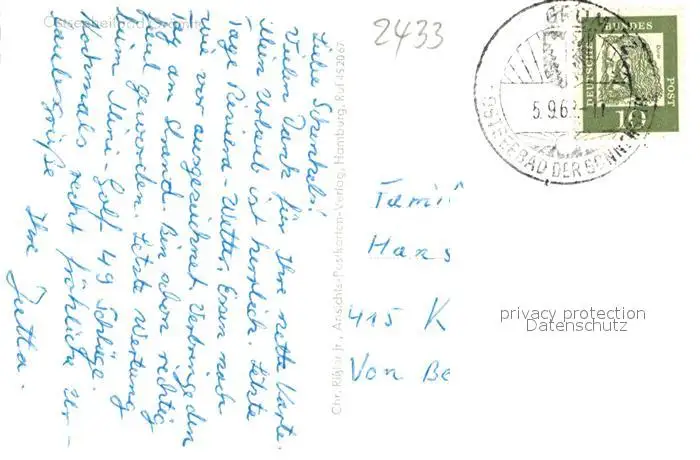 Ostseeheilbad Grömitz
Liebe Schinkels!
Vielen Dank für Ihre nette Karte.
Mein Urlaub ist herrlich. Letzte
Tage Riviera-Wetter, Essen nach
wie vor ausgezeichnet. Verbringe den
Tag am Strand. Bin schon richtig
faul geworden. Letzte Wertung
beim Mini-Golf 49 Schläge.
Nochmals recht fröhliche Ur-
laubsgrüße
Ihre Jutta.
Chr. Rißler jr., Ansichts-Postkarten-Verlag, Hamburg, Ruf 452067
2433
5.9.63
OSTSEEBAD DER SONNE
DEUTSCHE BUNDES POST
10
Famil
Hans
415 K
Von Be
privacy protection
Datenschutz